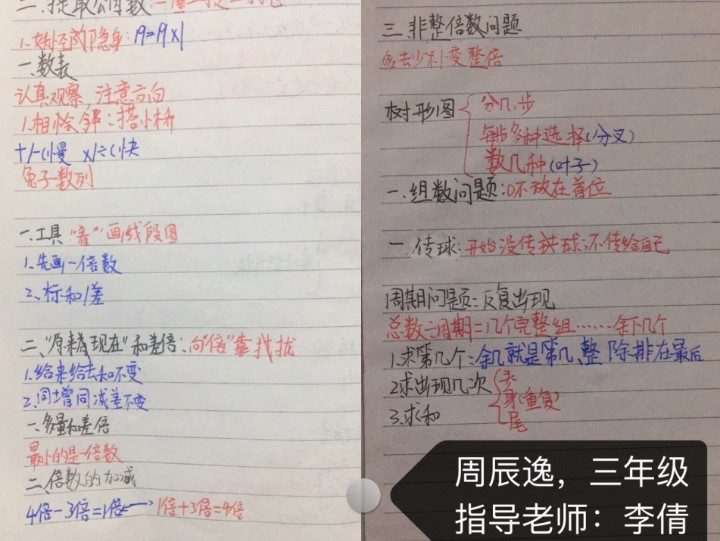 二、提取公因数
1、好孩子的隐身：19=19×1
一、数表
认真观察，注意方向
1、相恰邻：搭小桥
+/-(慢 ×/÷(快
兔子数列
一、工具"音"画线段图
1、先画一倍数
2、标和/差
二、"原来或现在"和差倍：向"倍"靠找拢
1、给来给去和不变
2、同增同减差不变
一、多量和差倍
最小的是一倍数
二、倍数的加减
4倍-3倍=1倍 1倍+3倍=4倍
三、非整倍数问题
多去少补变整倍
树形图
分几步
每步各种选择(分叉)
数几种(叶子)
一、组数问题：0不放在首位
一、传球：开始没传球；不传给自己
周期问题：反复出现
总数÷周期=几个完整组……余下几个
1、求第几个：余几就是第几、整除排在最后
2、求出现几次 头
身(重复)
3、求和 尾
周辰逸，三年级
指导老师：李倩